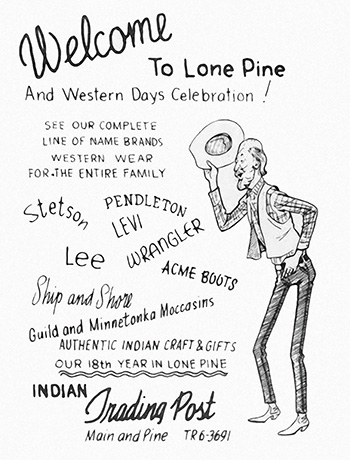 Welcome
To Lone Pine
And Western Days Celebration!
SEE OUR COMPLETE
LINE OF NAME BRANDS
WESTERN WEAR
FOR THE ENTIRE FAMILY
Stetson
PENDLETON
LEVI
Lee
WRANGLER
ACME BOOTS
Ship and Shore
Guild and Minnetonka Moccasins
AUTHENTIC INDIAN CRAFT & GIFTS
OUR 18th YEAR IN LONE PINE
INDIAN
Trading Post
Main and Pine TR6-3691